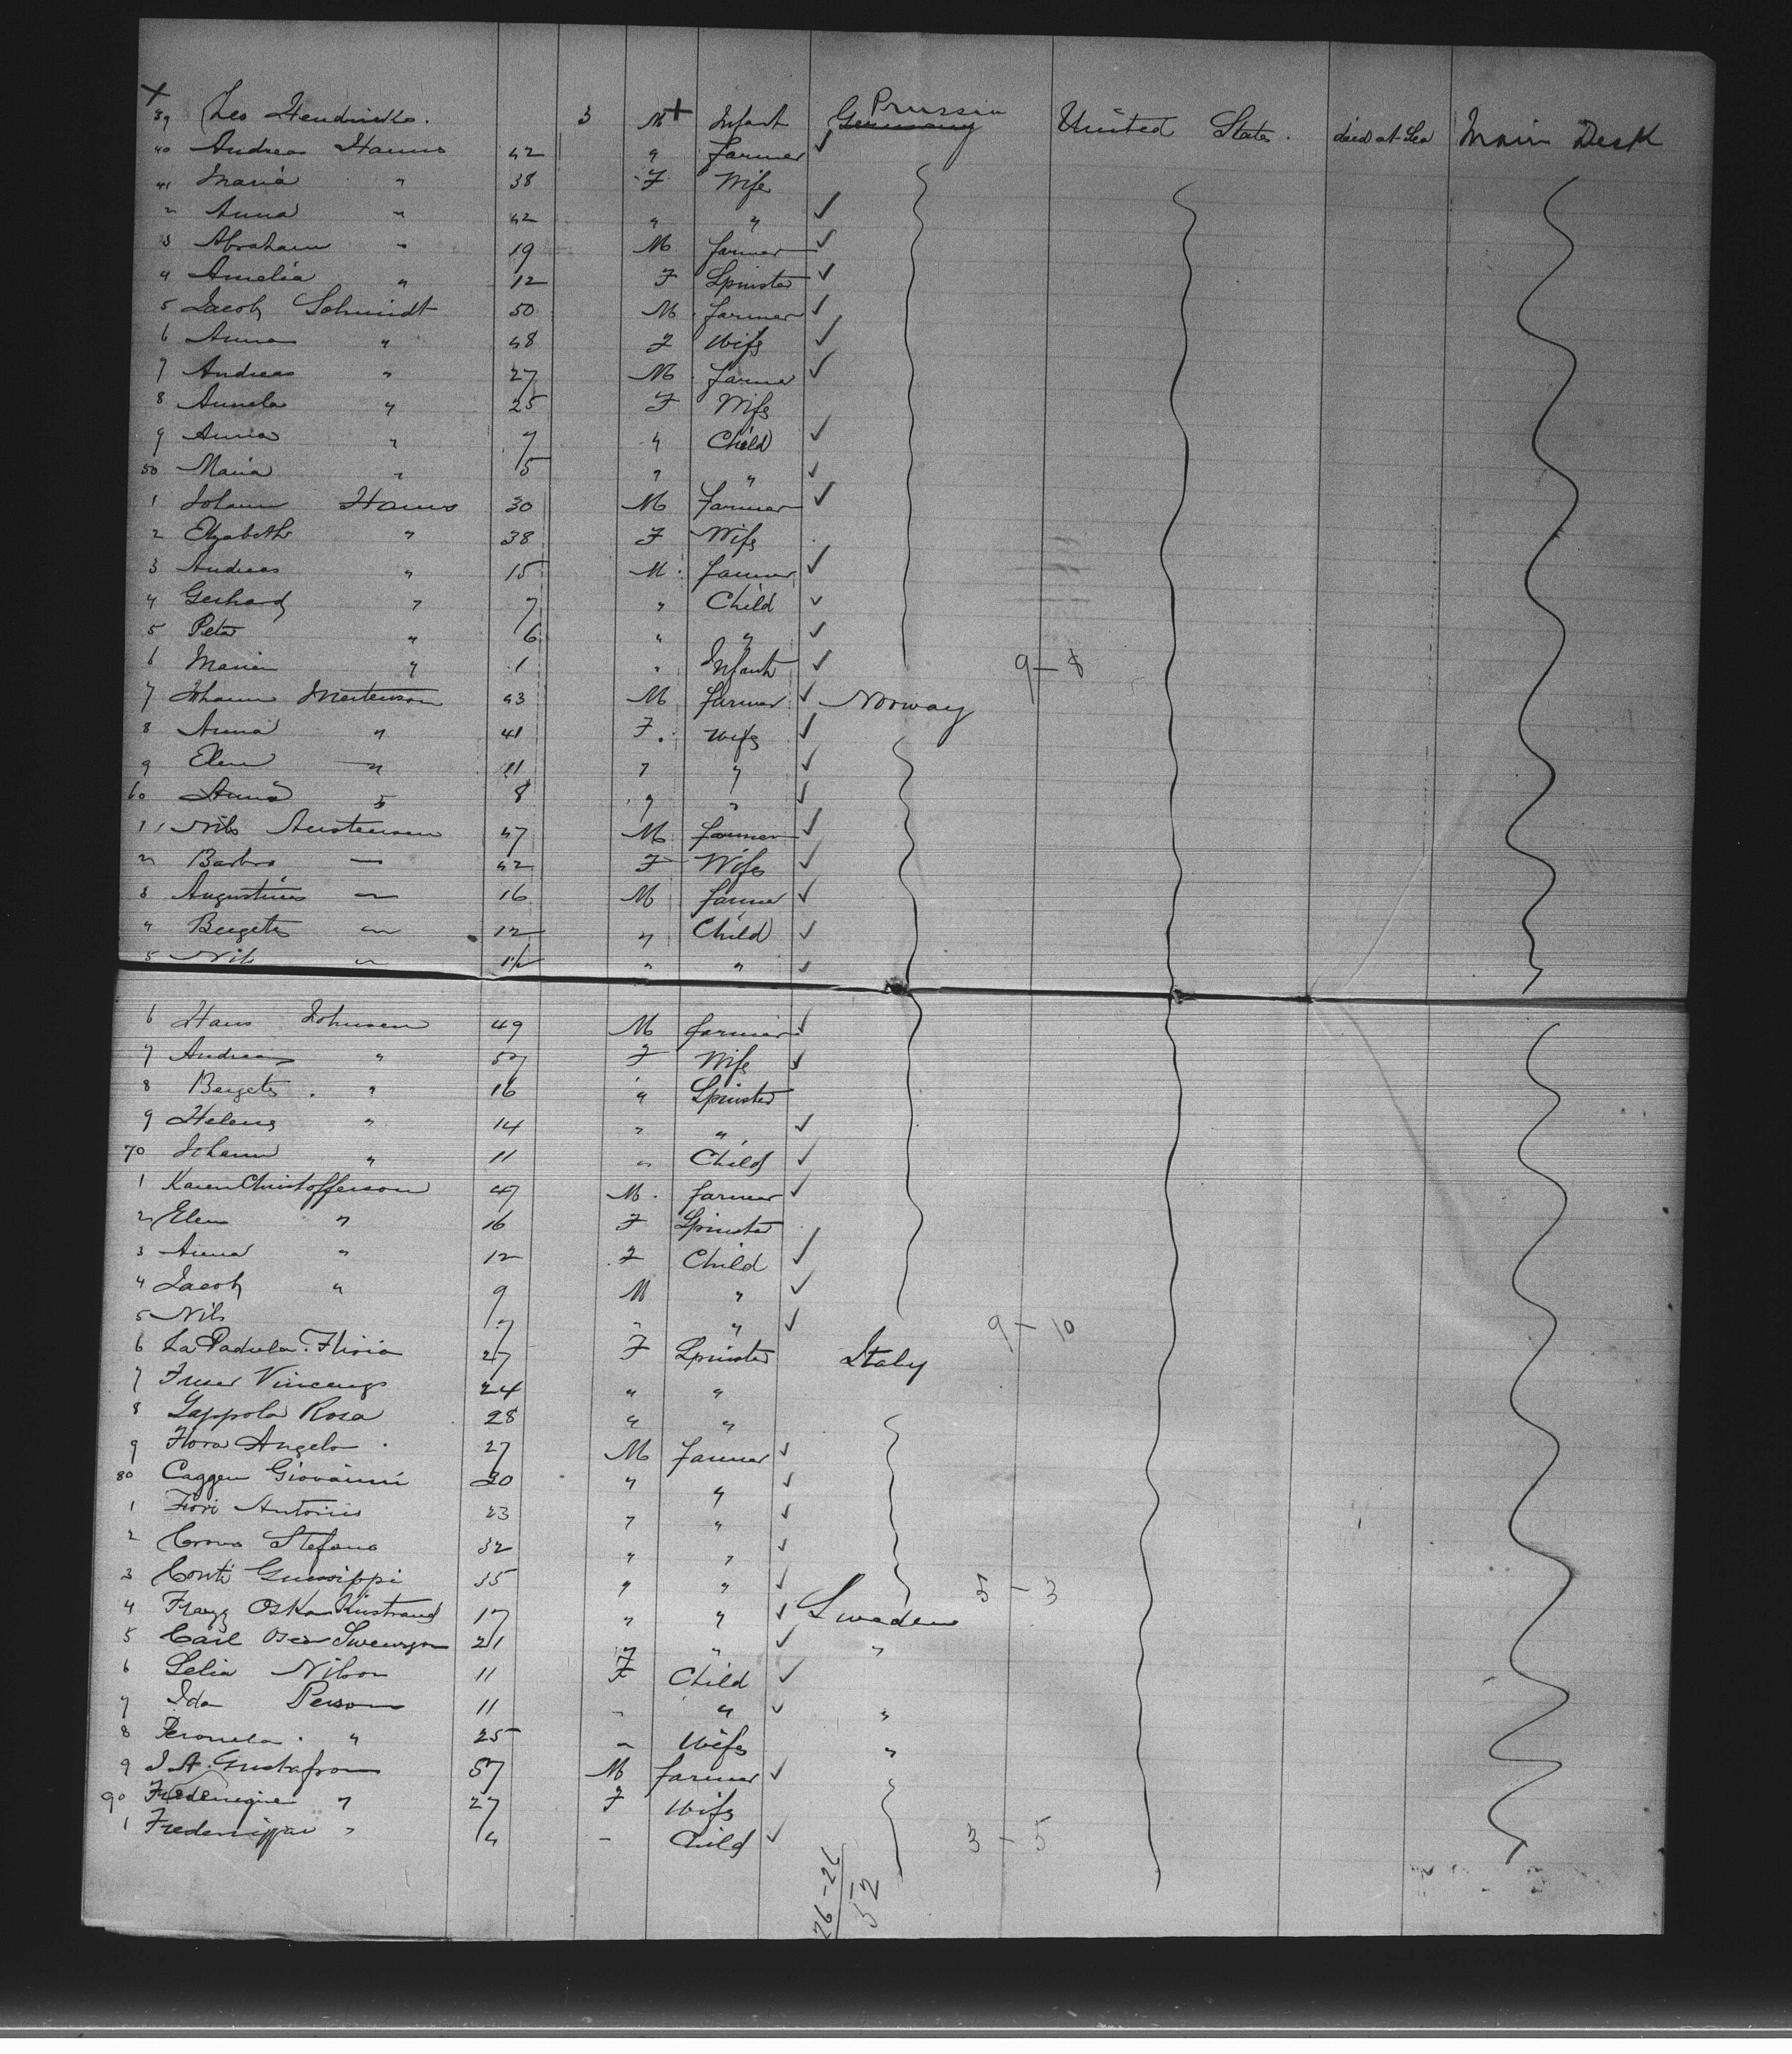 39 Leo Hendricks. 3 M Infant Germany Prussia United States. died at Sea Main Deck
40 Andreas Hanus 42 " farmer
41 Maria " 38 F Wife
2 Anna " 42 " "
3 Abraham " 19 M farmer
4 Amelia " 12 F Spinster
5 Jacob Schmidt 50 M farmer
6 Anna " 48 F Wife
7 Andreas " 27 M farmer
8 Annela " 25 F Wife
9 Anna " 7 " Child
50 Maria " 5 " "
1 Johann Hanus 30 M Farmer
2 Elizabeth " 38 F Wife
3 Andreas " 15 M farmer
4 Gerhard " 7 " Child
5 Peter " 6 " "
6 Maria " 1 " Infant 9 - 8
7 Johann Mortenson 43 M farmer Norway
8 Anna " 41 F. wife
9 Elen " 11 " "
60 Anna " 8 " "
1 Nils Austensen 47 M farmer
2 Barbro " 42 F Wife
3 Augustinus " 16 M farmer
4 Bergete " 12 " Child
5 Nils " " "
6 Hans Johnsen 49 M farmer
7 Andrea " 57 F Wife
8 Bergete " 16 " Spinster
9 Helena " 14 " "
70 Johann " 11 " Child
1 Karen Christofferson 47 M. farmer
2 Elen " 16 F Spinster
3 Anna " 12 F Child
4 Jacob " 9 M "
5 Nils 7 " " 9 - 10
6 La Padula 27 F Spinster Italy
7 Vincenzo 24 " "
8 Rosa 28 " "
9 Flora Angelo 27 M farmer
80 Giovanni 30 " "
1 Fiori Antonio 23 " "
2 Stefano 32 " "
3 Conti Guissippi 35 " " 5 - 3
4 Oskar 17 " " Sweden
5 Carl 21 " " "
6 Selia Nilson 11 F Child
7 Ida Person 11 " " "
8 " 25 " Wife "
9 J. A. Gustafson 57 M farmer
90 " 27 F Wife
1 " 4 " Child 3 - 5
26 - 26
52